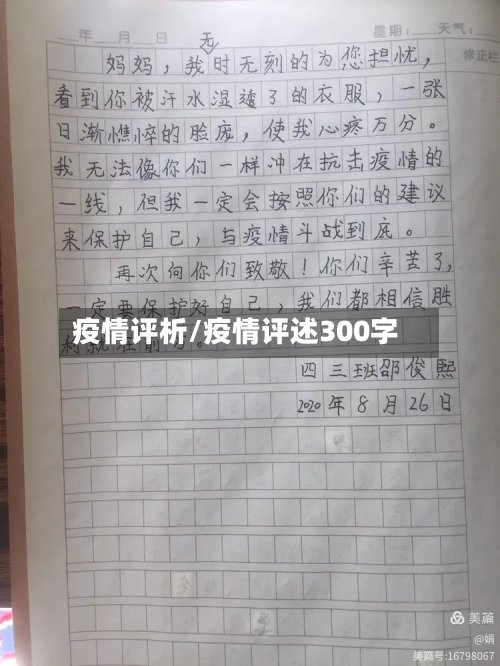 年 月 日
星期: 天气:
修正栏
无
妈妈,我时无刻的为您担忧,
看到你被汗水湿透了的衣服,一张
日渐憔悴的脸庞,使我心疼万分。
我无法像你们一样冲在抗击疫情的
一线,但我一定会按照你们的建议
来保护自己,与疫情斗战到底。
再次向你们致敬!你们辛苦了,
一定要保护好自己,我们都相信胜
疫情评析/疫情评述300字
四三班邵俊熙
2020年8月26日
美篇
@娟
美篇号:16798067